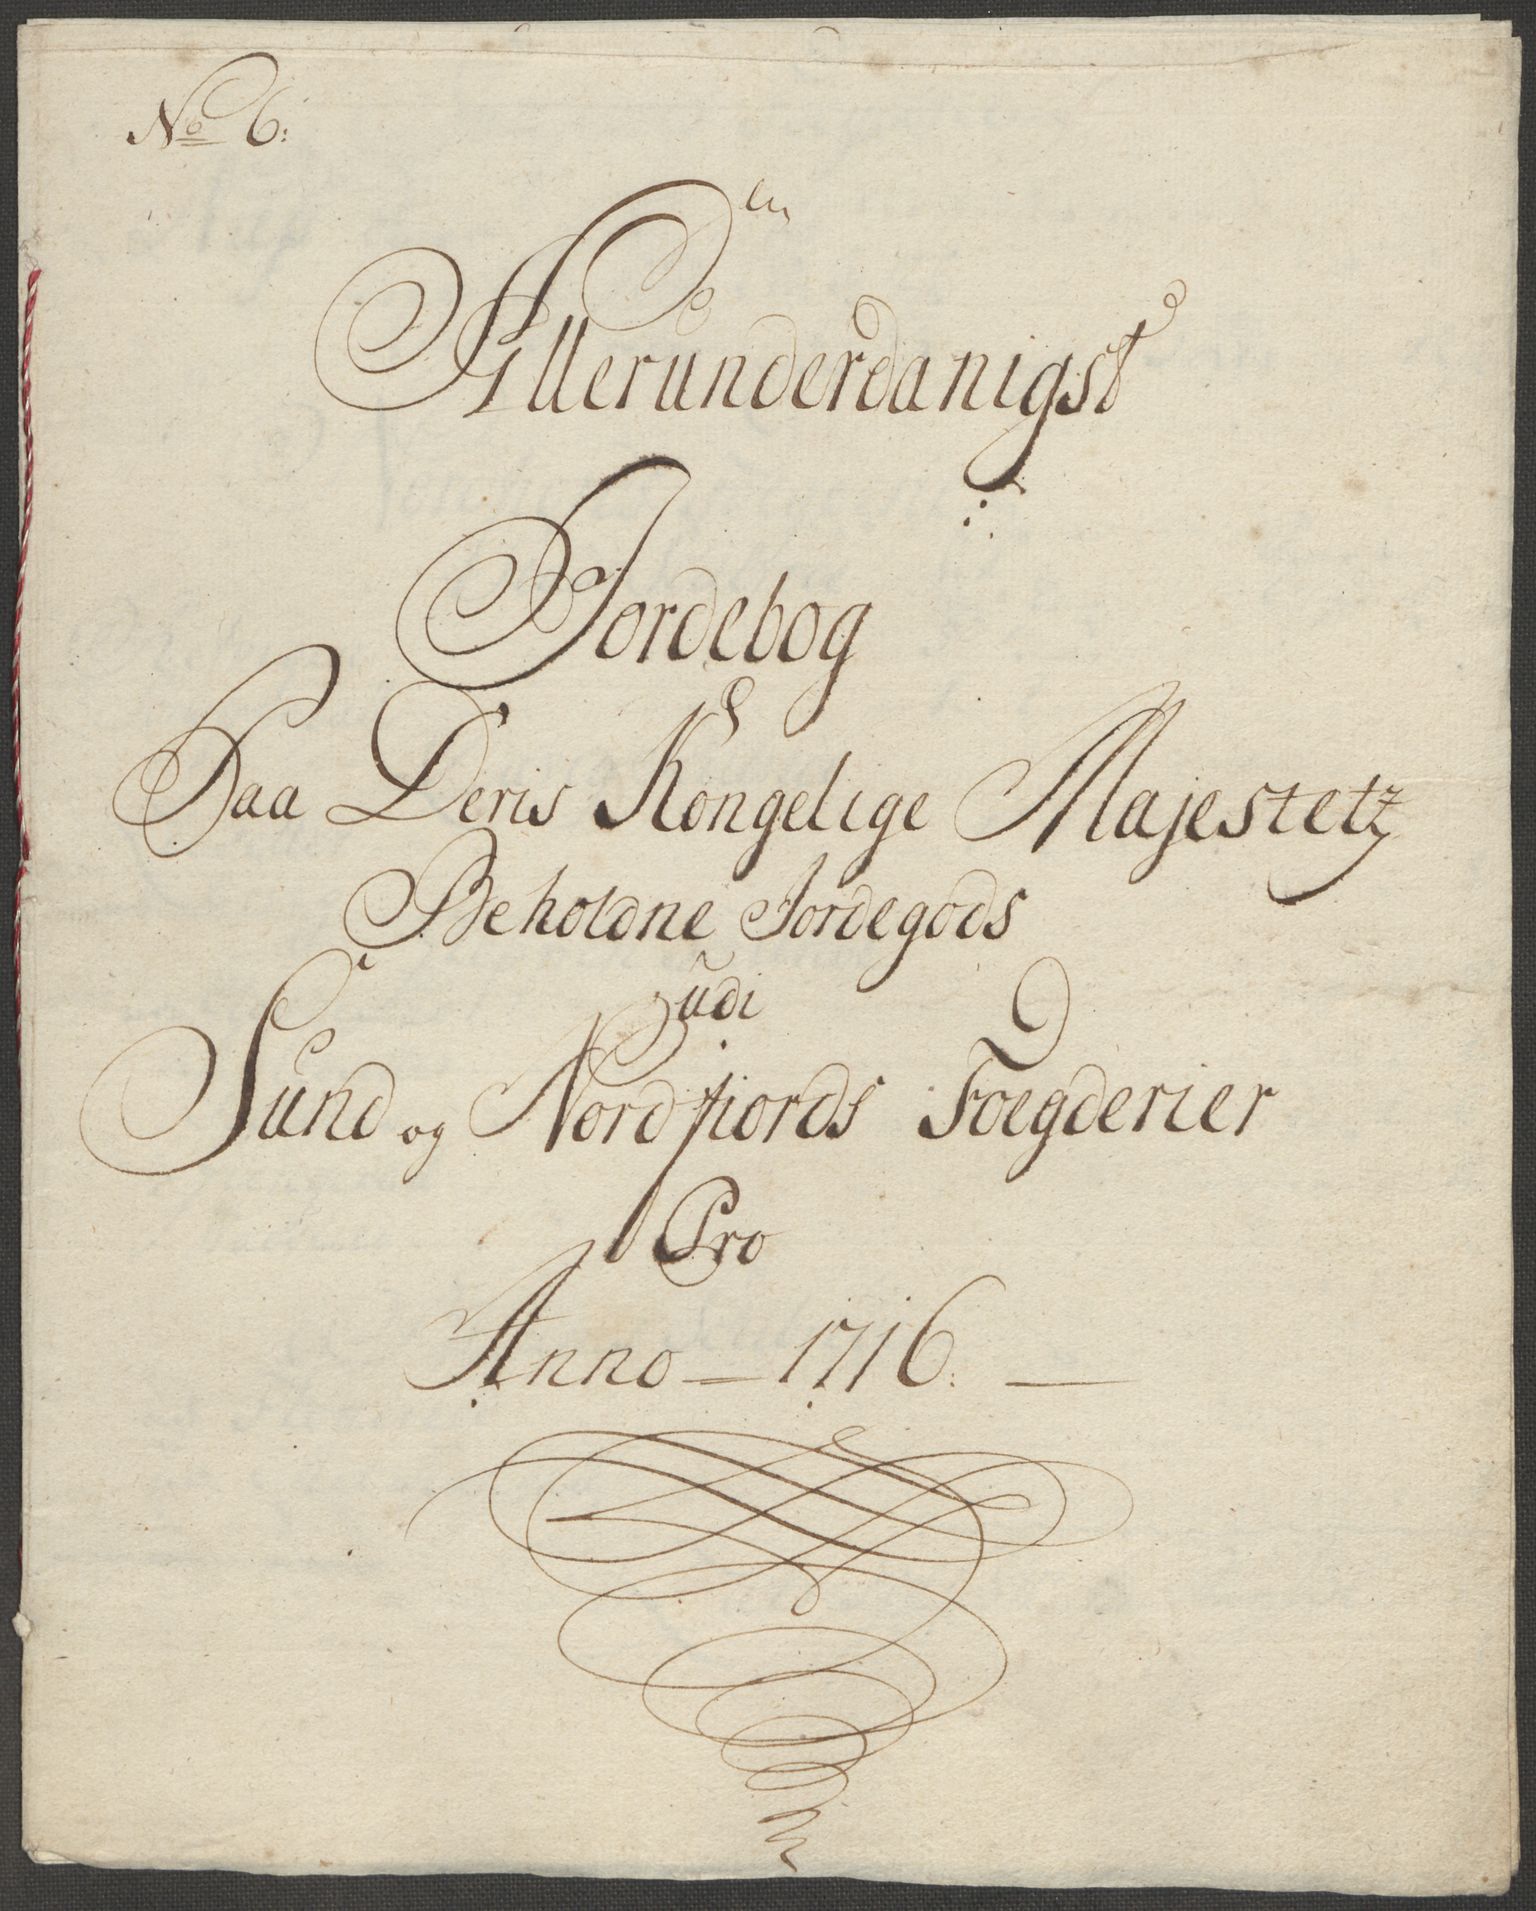 No 6:
Allerunderdanigst
Jordebog
Paa Deris Kongelige Majestetz
Beholdne Jordegods
udi
Sund og Nordfiords Foegderier
Pro
Anno - 1716. -